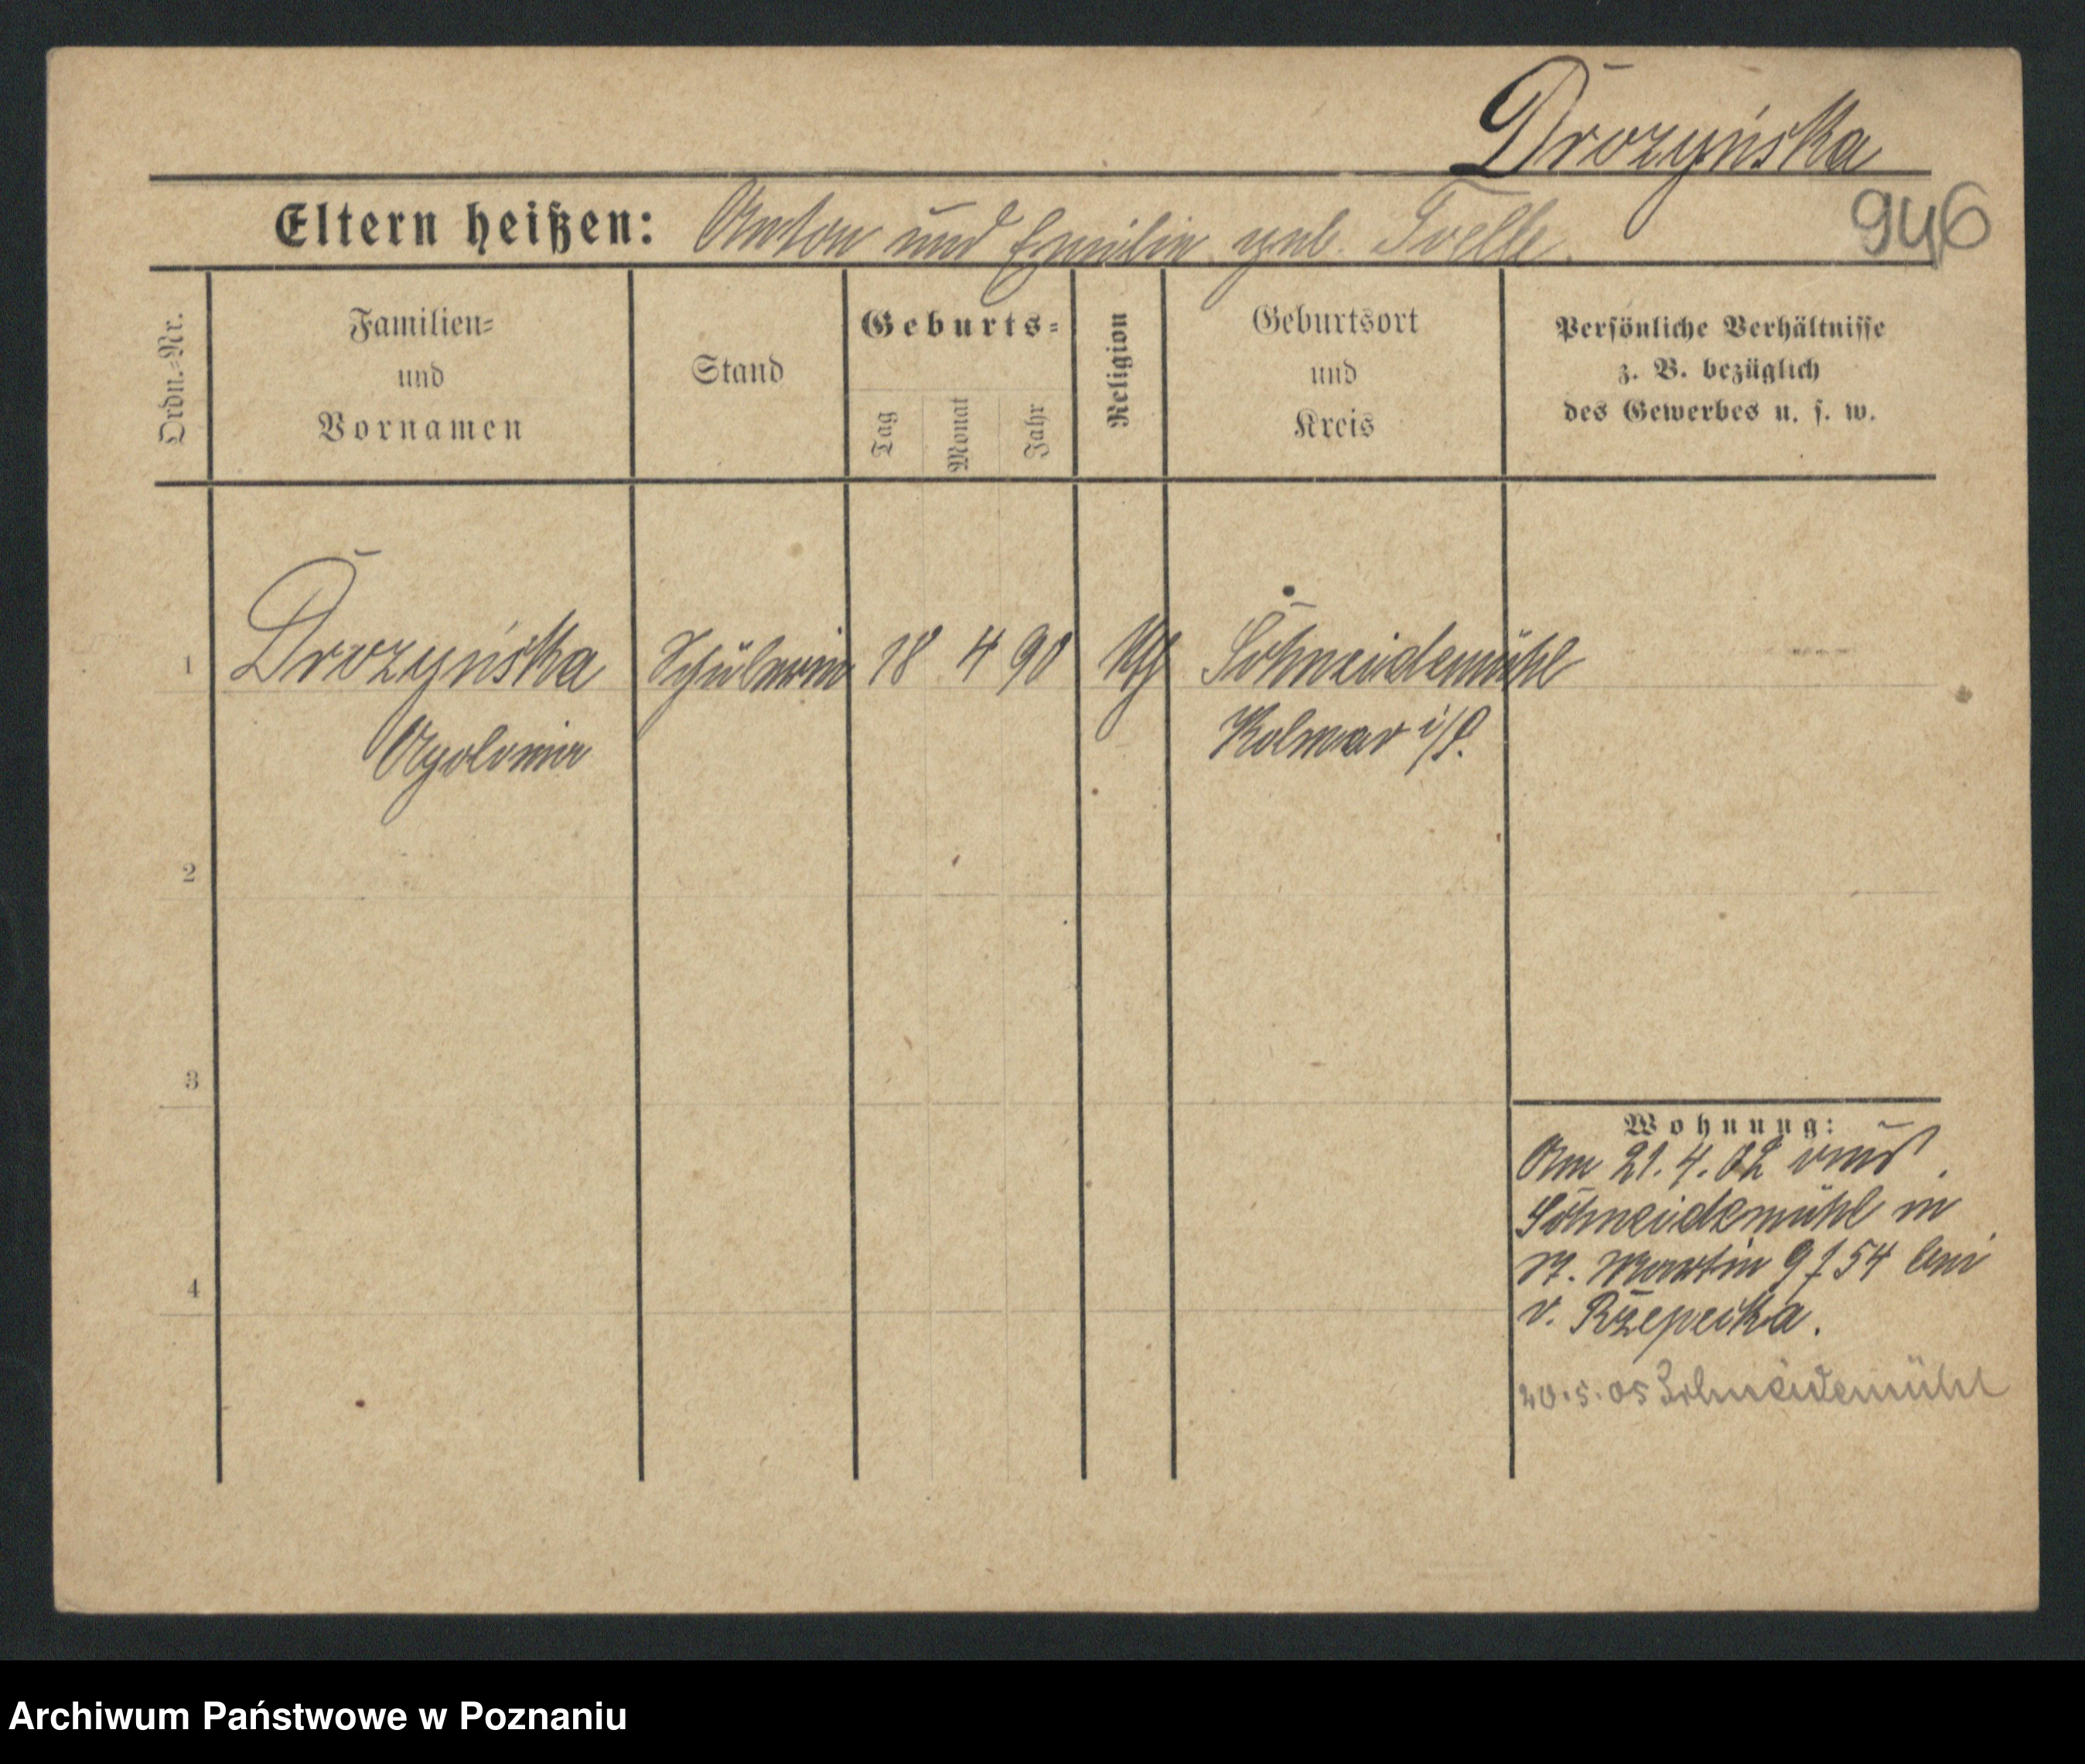 Drozyńska
946
Eltern heißen: Anton und Emilie geb. Toelle.
Ordn.-Nr.
Familien-
und
Vornamen
Stand
Geburts-
Tag
Monat
Jahr
Religion
Geburtsort
und
Kreis
Persönliche Verhältnisse
z. B. bezüglich
des Gewerbes u. s. w.
1 Drozyńska Schülerin 18 4 90 Schneidemühl
Apolonia Kolmar i/P.
2
3
4
Wohnung:
Am 21. 4. 02 aus
Schneidemühl in
St. Martin 9 f 54 bei
v. Rzepecka.
20.5.05 Schneidemühl
Archiwum Państwowe w Poznaniu